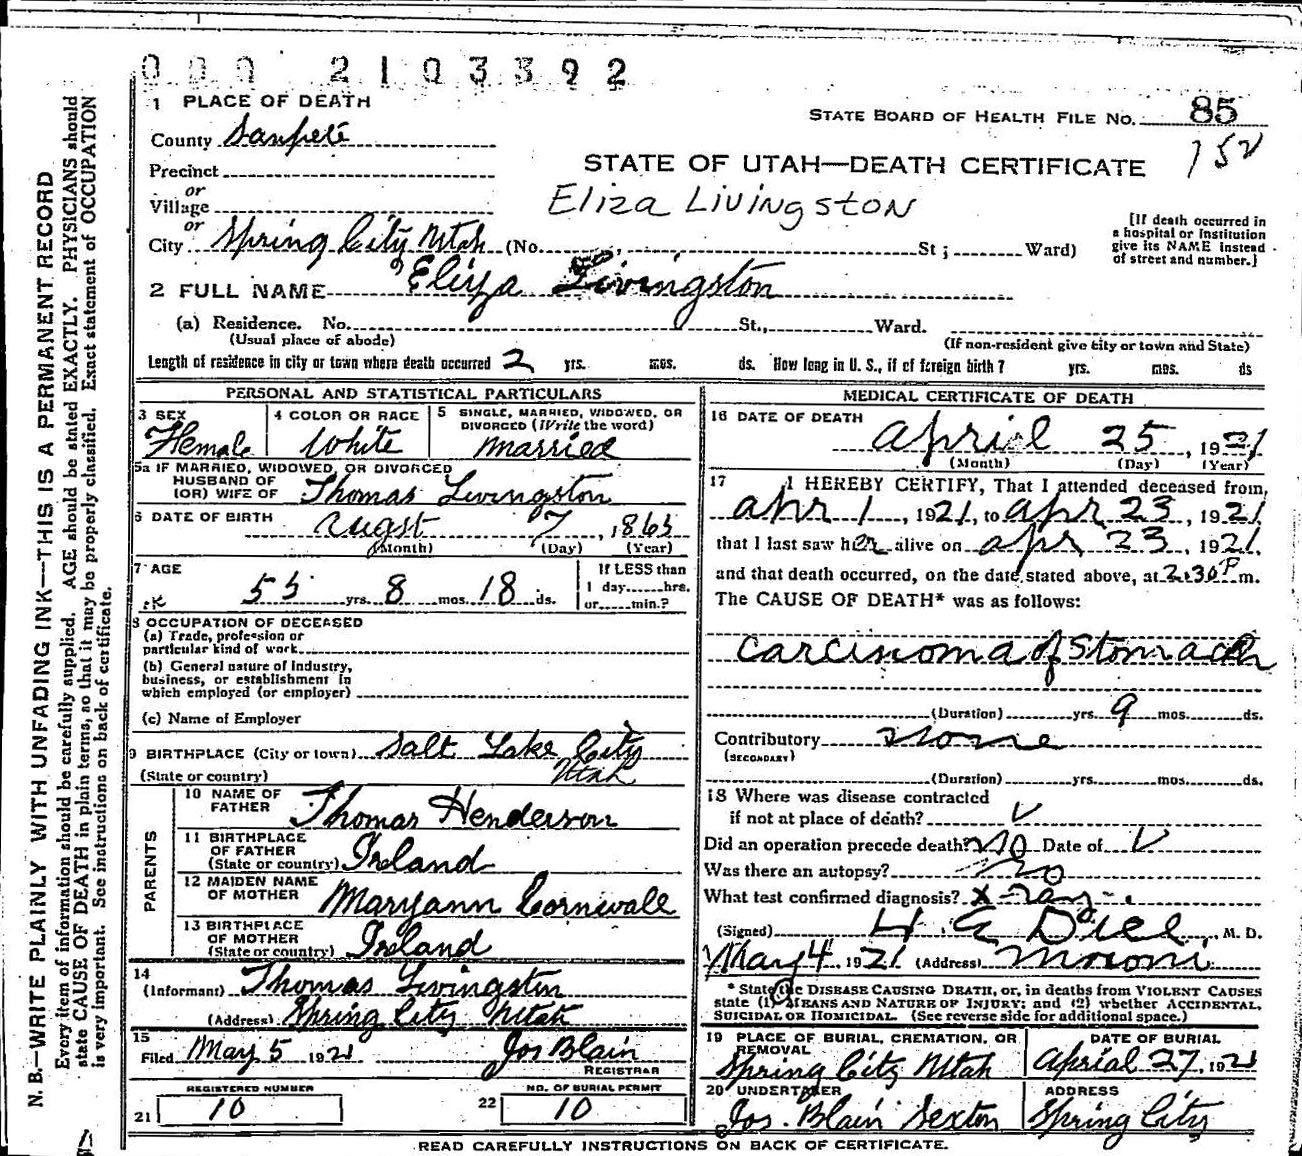 0 0 0 2 1 0 3 3 9 2
1 PLACE OF DEATH
STATE BOARD OF HEALTH FILE NO. 85
County Sanpete
152
STATE OF UTAH—DEATH CERTIFICATE
Precinct
or
Village
Eliza Livingston
or
City Spring City Utah (No. St; Ward)
[If death occurred in
a hospital or institution
give its NAME instead
of street and number.]
2 FULL NAME Eliza Livingston
(a) Residence. No. St., Ward.
(Usual place of abode)
(If non-resident give city or town and State)
Length of residence in city or town where death occurred 2 yrs. mos. ds. How long in U. S., if of foreign birth? yrs. mos. ds
PERSONAL AND STATISTICAL PARTICULARS
3 SEX
Female
4 COLOR OR RACE
White
5 SINGLE, MARRIED, WIDOWED, OR
DIVORCED (Write the word)
married
5a IF MARRIED, WIDOWED, OR DIVORCED
HUSBAND OF
(OR) WIFE OF Thomas Livingston
6 DATE OF BIRTH Augst 7, 1865
(Month) (Day) (Year)
7 AGE
55 yrs. 8 mos. 18 ds.
If LESS than
1 day hrs.
or min.?
8 OCCUPATION OF DECEASED
(a) Trade, profession or
particular kind of work
(b) General nature of Industry,
business, or establishment in
which employed (or employer)
(c) Name of Employer
9 BIRTHPLACE (City or town) Salt Lake City
(State or country) Utah
PARENTS
10 NAME OF
FATHER Thomas Henderson
11 BIRTHPLACE
OF FATHER
(State or country) Ireland
12 MAIDEN NAME
OF MOTHER Maryann Cornwall
13 BIRTHPLACE
OF MOTHER
(State or country) Ireland
14
(Informant) Thomas Livingston
(Address) Spring City Utah
15
Filed May 5 1921 Jos Blain
REGISTRAR
REGISTERED NUMBER
21 10
NO. OF BURIAL PERMIT
22 10
MEDICAL CERTIFICATE OF DEATH
16 DATE OF DEATH
April 25, 1921
(Month) (Day) (Year)
17 I HEREBY CERTIFY, That I attended deceased from
apr 1, 1921, to apr 23, 1921
that I last saw her alive on apr 23, 1921,
and that death occurred, on the date stated above, at 2:30 P m.
The CAUSE OF DEATH* was as follows:
carcinoma of Stomach
(Duration) yrs. 9 mos. ds.
Contributory none
(SECONDARY)
(Duration) yrs. mos. ds.
18 Where was disease contracted
if not at place of death? V
Did an operation precede death? no Date of V
Was there an autopsy? no
What test confirmed diagnosis? X-ray
(Signed) M. D.
May 4 1921 (Address) Moroni
* State the DISEASE CAUSING DEATH, or, in deaths from VIOLENT CAUSES
state (1) MEANS AND NATURE OF INJURY; and (2) whether ACCIDENTAL,
SUICIDAL OR HOMICIDAL. (See reverse side for additional space.)
19 PLACE OF BURIAL, CREMATION, OR
REMOVAL
Spring City Utah
DATE OF BURIAL
Aprial 27, 1921
20 UNDERTAKER
Jos. Blain Sexton
ADDRESS
Spring City
READ CAREFULLY INSTRUCTIONS ON BACK OF CERTIFICATE.
N. B.—WRITE PLAINLY WITH UNFADING INK—THIS IS A PERMANENT RECORD
Every item of information should be carefully supplied. AGE should be stated EXACTLY. PHYSICIANS should
state CAUSE OF DEATH in plain terms, so that it may be properly classified. Exact statement of OCCUPATION
is very important. See instructions on back of certificate.